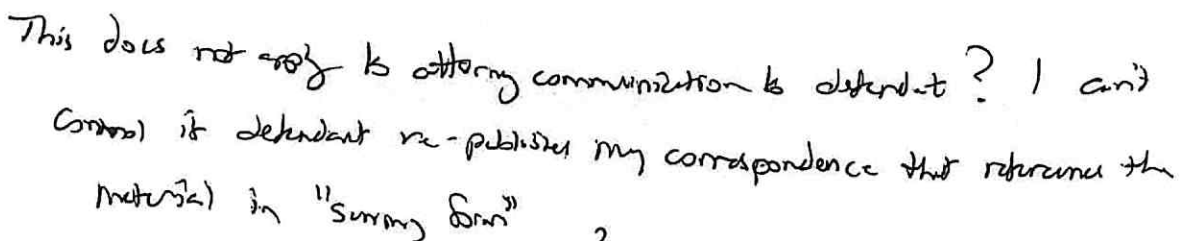 This does not apply to attorney communication to defendant? I can't
control if defendant re-publishes my correspondence that references the
material in "summary form"
?